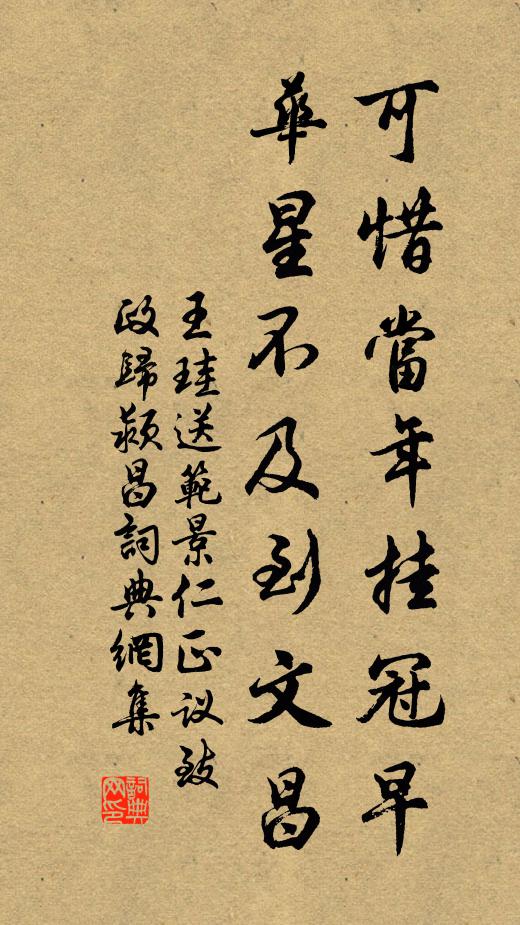 可惜當年挂冠早
華星不及到文昌
王珪送範景仁正议致
政歸潁昌詞典網集
詞典網印